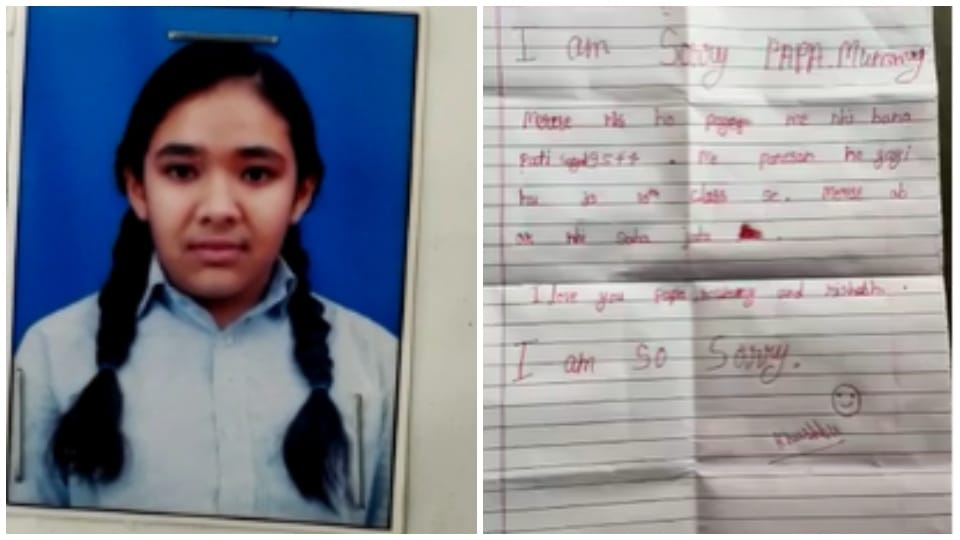 I am Sorry PAPA Mummy
Merese nhi ho payega me nhi bana
pati 9s++ . me paresan ho gygi
hu is 10th class se. merese ab
or nhi saha jata .
I love you papa mummy and rishabh .
I am so Sorry.
Khushbu